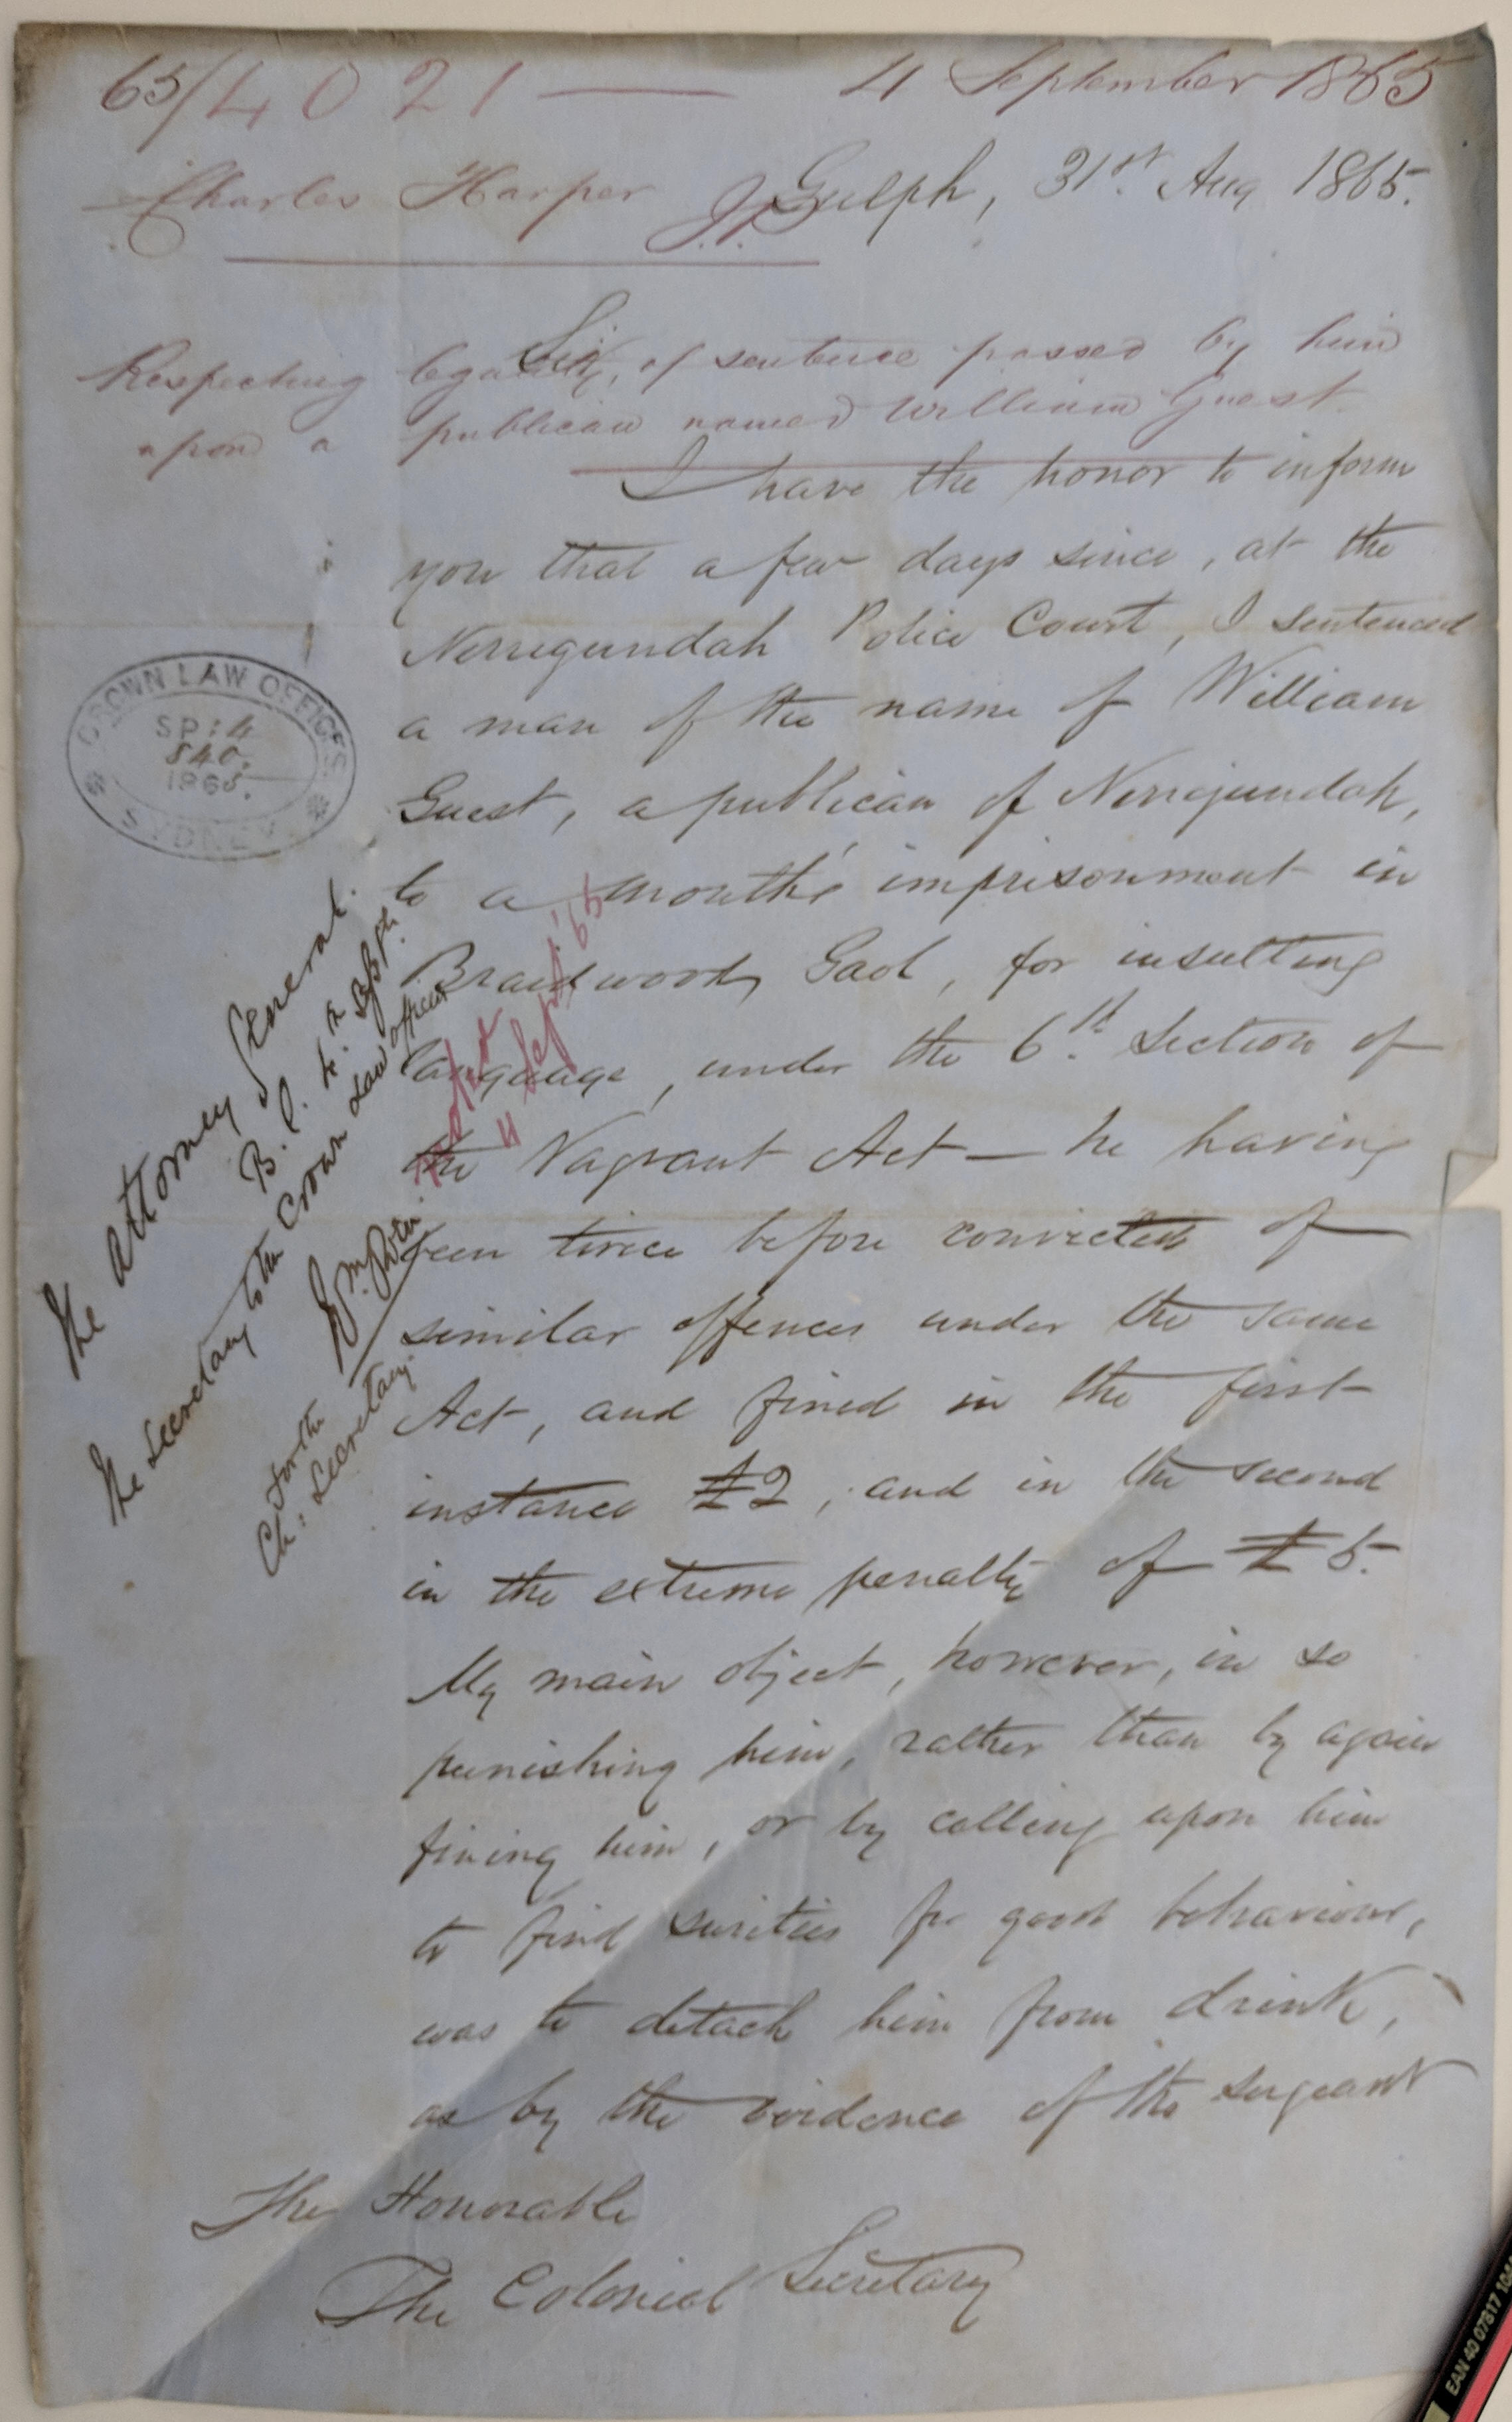 65/4021 — 4 September 1865
Charles Harper J.P.
Guelph, 31st. Aug 1865.
Sir,
Respecting legality of sentence passed by him
upon a publican named William Guest.
I have the honor to inform
you that a few days since, at the
Nerregundah Police Court, I sentenced
a man of the name of William
Guest, a publican of Nerrigundah,
to a month's imprisonment in
Braidwood Gaol, for insulting
language, under the 6th. Section of
the Vagrant Act — he having
been twice before convicted of
similar offences under the same
Act, and fined in the first
instance £2, and in the second
in the extreme penalty of £5.
My main object, however, in so
punishing him, rather than by again
fining him, or by calling upon him
to find surities for good behaviour,
was to detach him from drink,
as by the evidence of the sergeant
The Honorable
The Colonial Secretary
CROWN LAW OFFICES
SP: 4
840.
1865.
SYDNEY
The Attorney General.
B.C. 4th Septr.
The Secretary to the Crown Law Officers
For the
Ch: Secretary
4 Sept 65
EAN 40 07817 104